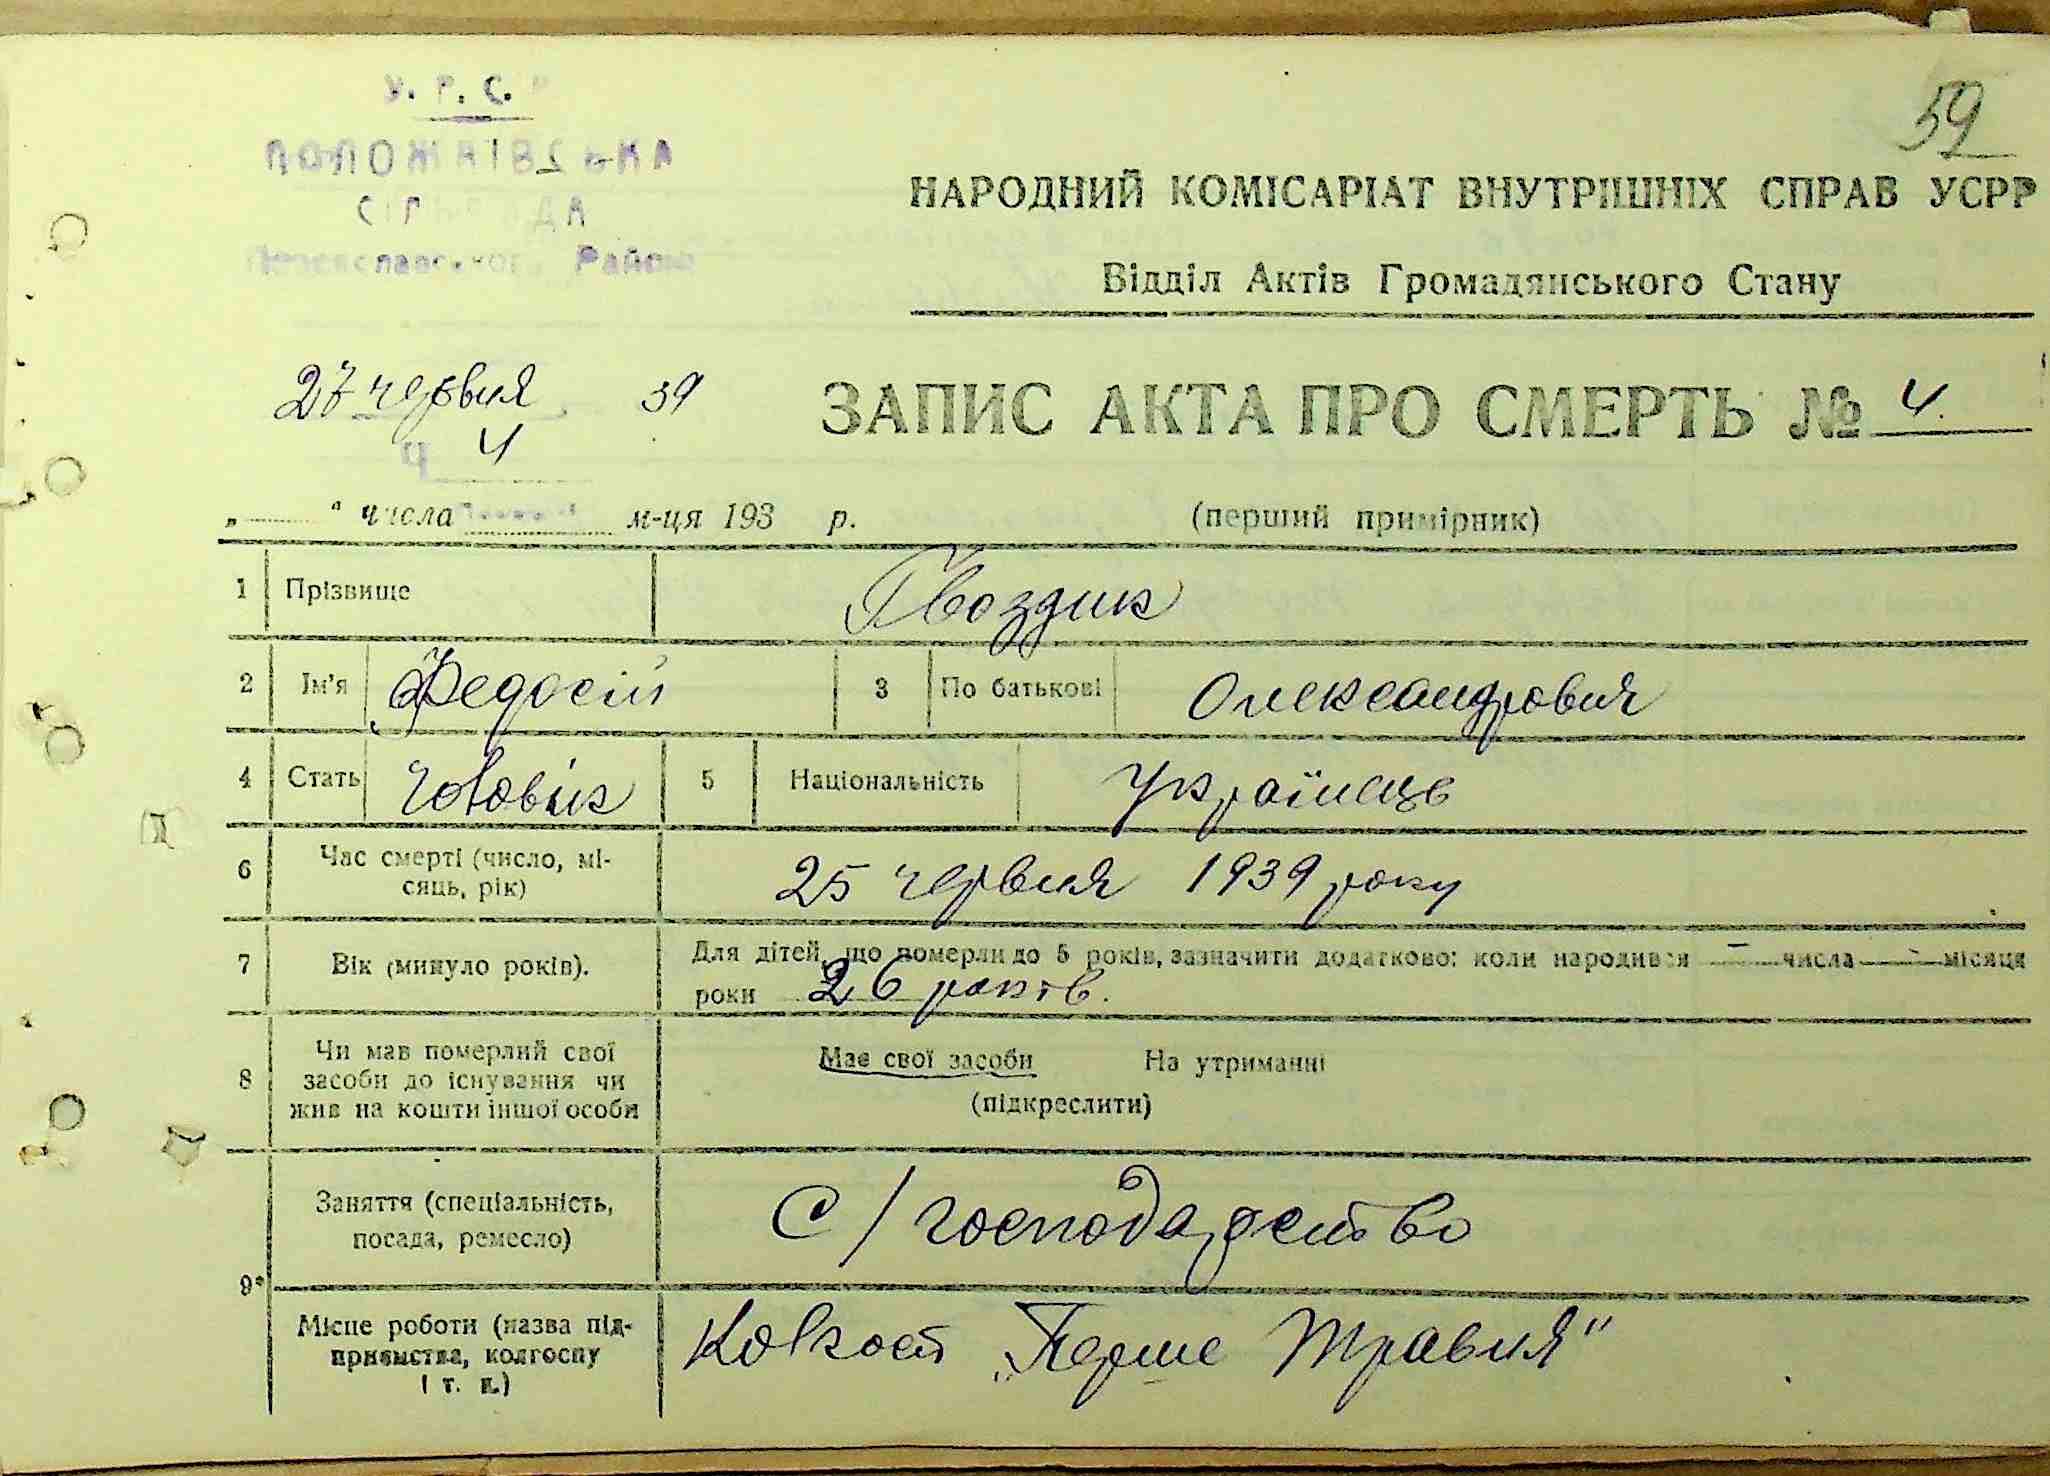 У. Р. С. Р
ПОЛОЖАІВСЬКА
СІЛЬРАДА
Переяславського Району
59
НАРОДНИЙ КОМІСАРІАТ ВНУТРІШНІХ СПРАВ УСРР
Відділ Актів Громадянського Стану
27 червня 39
ЗАПИС АКТА ПРО СМЕРТЬ № 4.
Ч 4
„ “ числа м-ця 193 р. (перший примірник)
1 Прізвище Гвоздик
2 Ім'я Федосій 3 По батькові Олександрович
4 Стать Чоловік 5 Національність Українець
6 Час смерті (число, мі-
сяць, рік) 25 червня 1939 року
7 Вік (минуло років). Для дітей, що померли до 5 років, зазначити додатково: коли народився — числа — місяця
роки 26 років.
8 Чи мав померлий свої
засоби до існування чи
жив на кошти іншої особи
Має свої засоби На утриманні
(підкреслити)
9* Заняття (спеціальність,
посада, ремесло) С/господарство
Місце роботи (назва під-
приємства, колгоспу
і т. і.) Колгосп „Перше Травня"